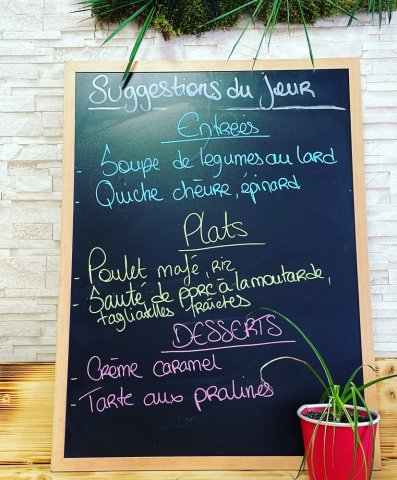 Suggestions du jour
Entrées
- Soupe de légumes au lard
- Quiche chèvre, épinard
Plats
- Poulet mafé, riz
- Sauté de porc à la moutarde,
tagliatelles fraîches
DESSERTS
- Crème caramel
- Tarte aux pralines